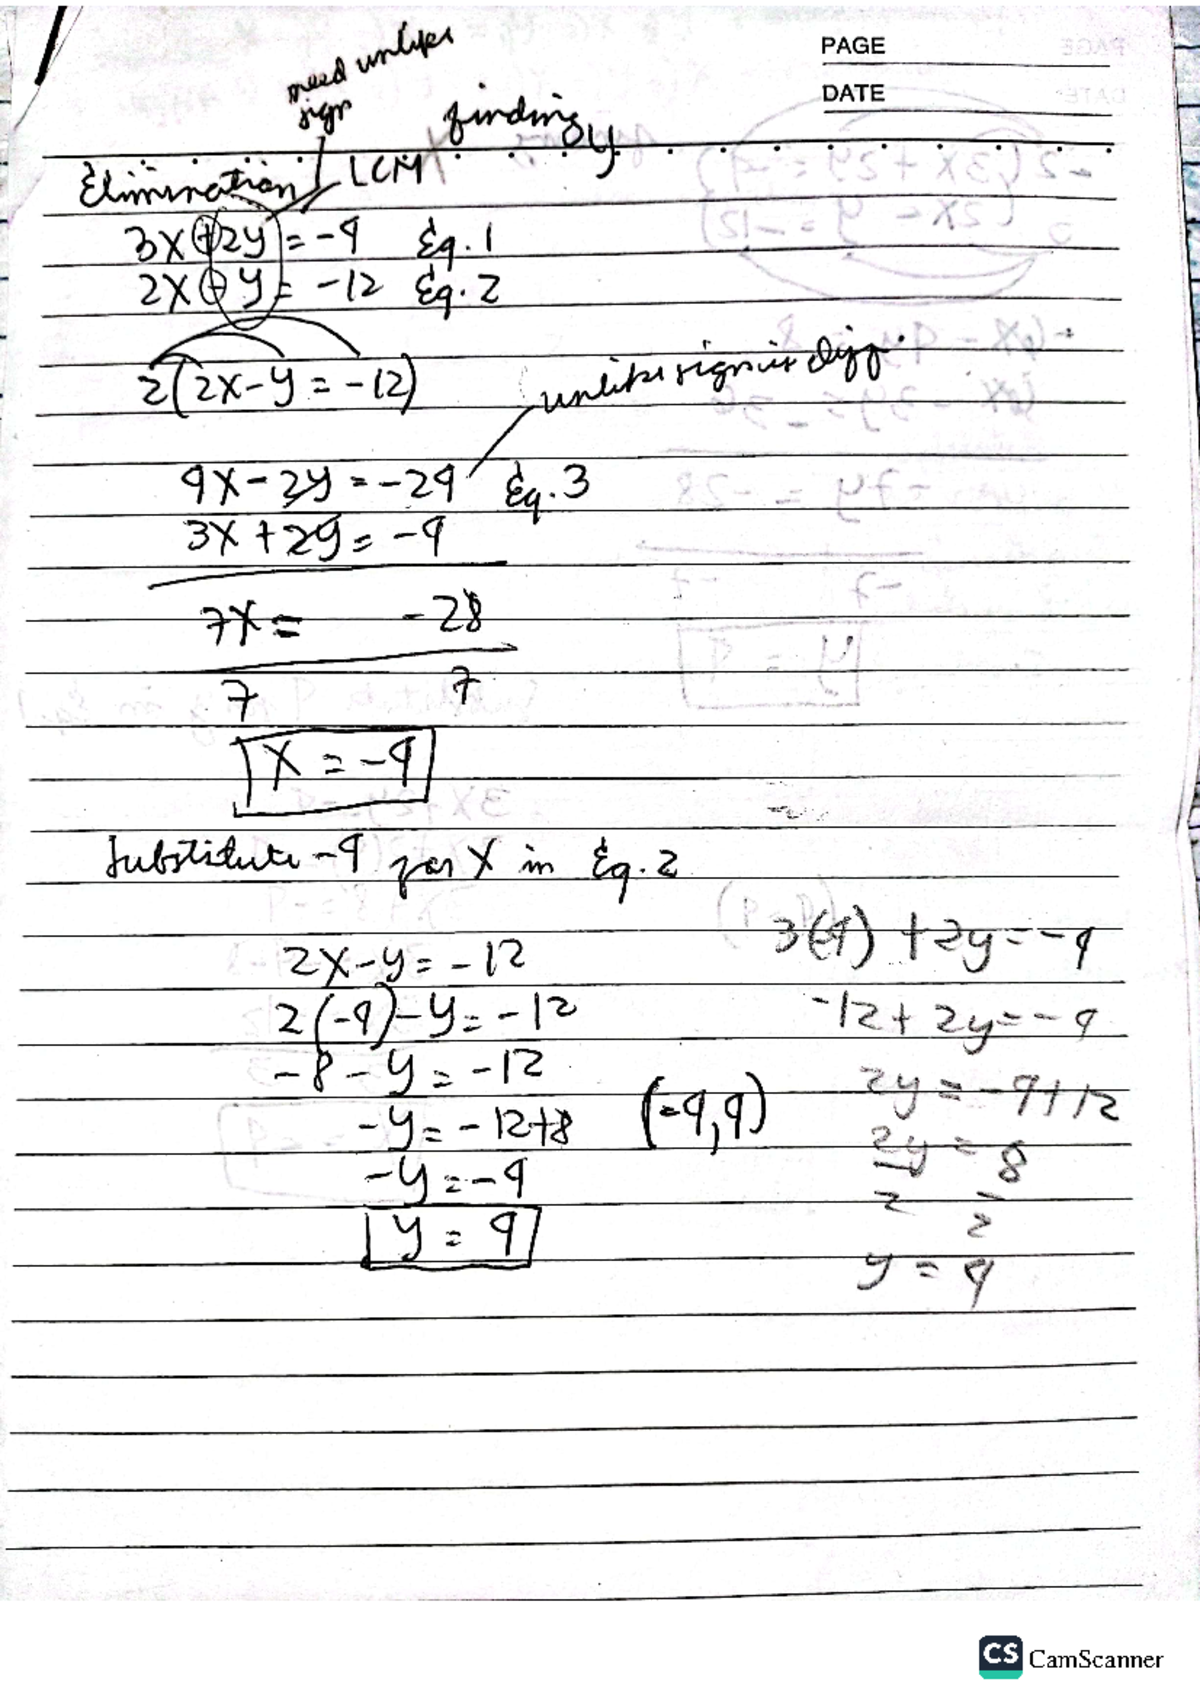 PAGE
DATE
need unlike
sign
finding y
Elimination LCM
3x+2y=-4 Eq.1
2x-y=-12 Eq.2
2(2x-y=-12)
unlike sign is diff.
4x-2y=-24 Eq.3
3x+2y=-4
7x= -28
7 7
x=-4
Substitute -4 for x in Eq.2
2x-y=-12
2(-4)-y=-12
-8-y=-12
-y=-12+8
-y=-4
y=4
(-4,4)
3(-4)+2y=-4
-12+2y=-4
2y=-4+12
2y=8
2 2
y=4
CS CamScanner